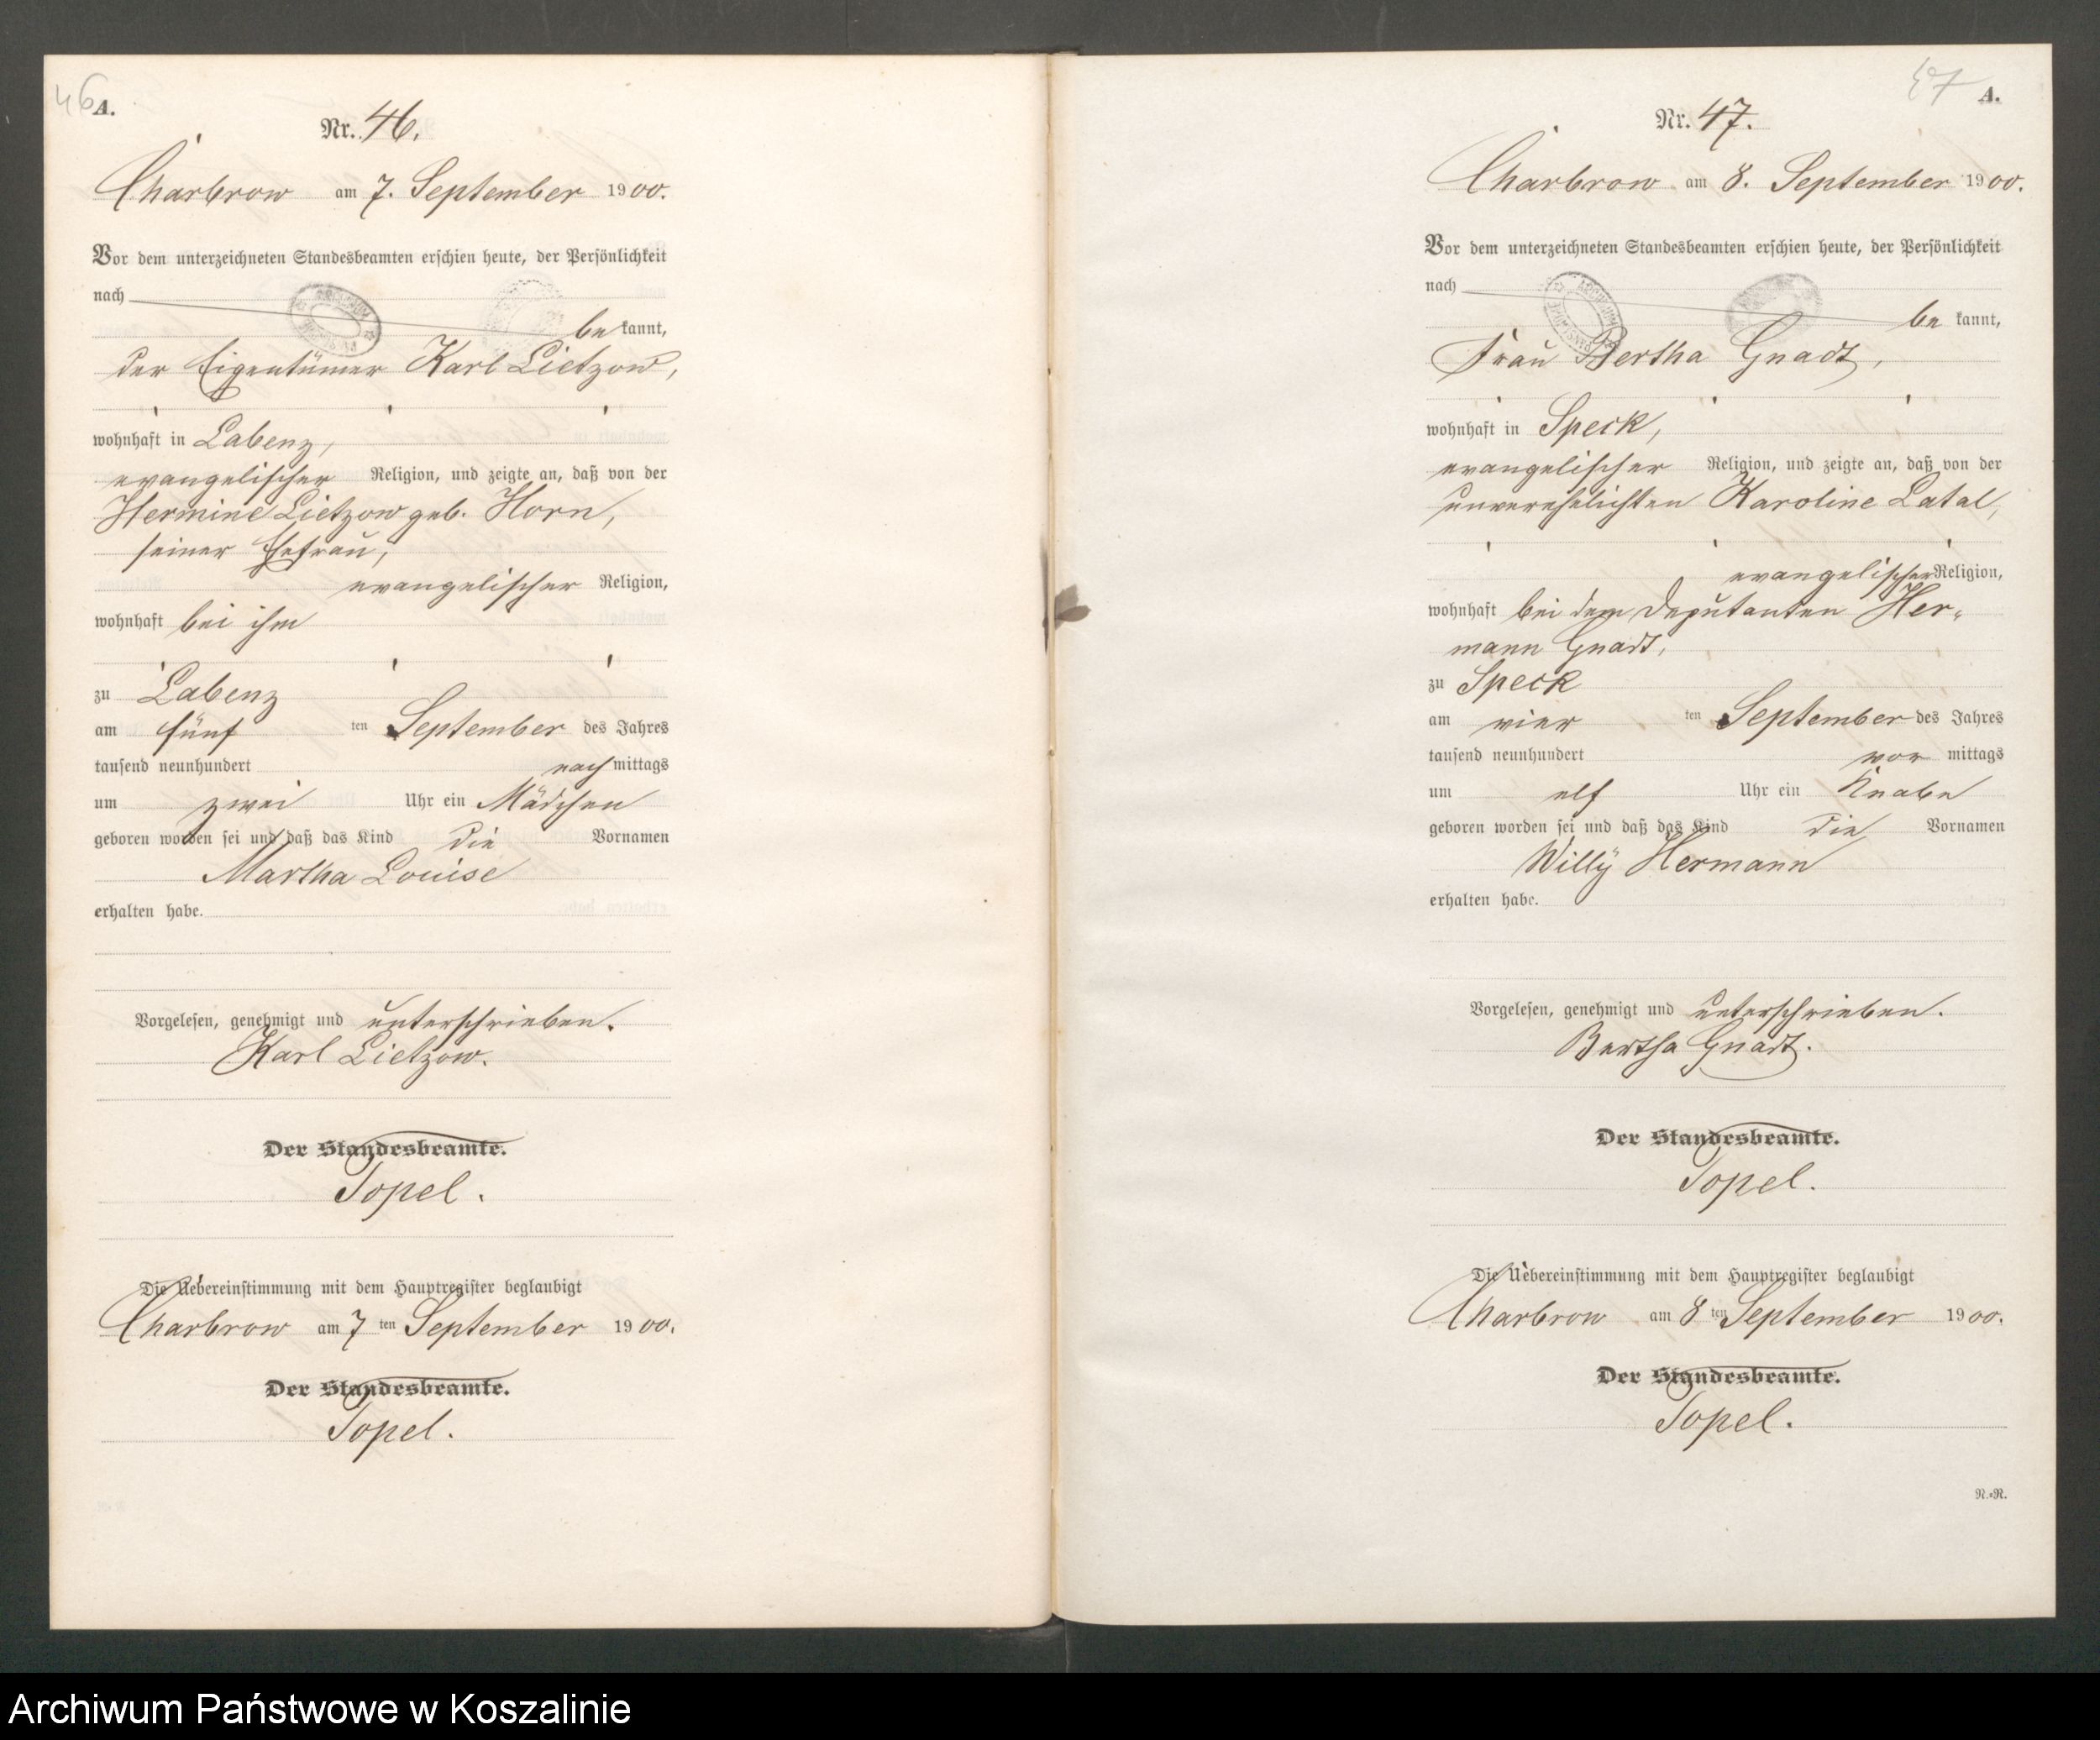 46 A.
Nr. 46.
Charbrow am 7. September 1900.
Vor dem unterzeichneten Standesbeamten erschien heute, der Persönlichkeit
nach
be kannt,
der Eigentümer Karl Lietzow,
wohnhaft in Labenz,
evangelischer Religion, und zeigte an, daß von der
Hermine Lietzow geb. Horn,
seiner Ehefrau,
evangelischer Religion,
wohnhaft bei ihm
zu Labenz
am fünf ten September des Jahres
tausend neunhundert nach mittags
um zwei Uhr ein Mädchen
geboren worden sei und daß das Kind die Vornamen
Martha Louise
erhalten habe.
Vorgelesen, genehmigt und unterschrieben.
Karl Lietzow.
Der Standesbeamte.
Topel.
Die Uebereinstimmung mit dem Hauptregister beglaubigt
Charbrow am 7 ten September 1900.
Der Standesbeamte.
Topel.
47 A.
Nr. 47.
Charbrow am 8. September 1900.
Vor dem unterzeichneten Standesbeamten erschien heute, der Persönlichkeit
nach
be kannt,
Frau Bertha Gnadt,
wohnhaft in Speck,
evangelischer Religion, und zeigte an, daß von der
unverehelichten Karoline Latal,
evangelischer Religion,
wohnhaft bei dem Deputanten Her-
mann Gnadt,
zu Speck
am vier ten September des Jahres
tausend neunhundert vor mittags
um elf Uhr ein Knabe
geboren worden sei und daß das Kind die Vornamen
Willÿ Hermann
erhalten habe.
Vorgelesen, genehmigt und unterschrieben.
Bertha Gnadt.
Der Standesbeamte.
Topel.
Die Uebereinstimmung mit dem Hauptregister beglaubigt
Charbrow am 8 ten September 1900.
Der Standesbeamte.
Topel.
N.=N.
Archiwum Państwowe w Koszalinie